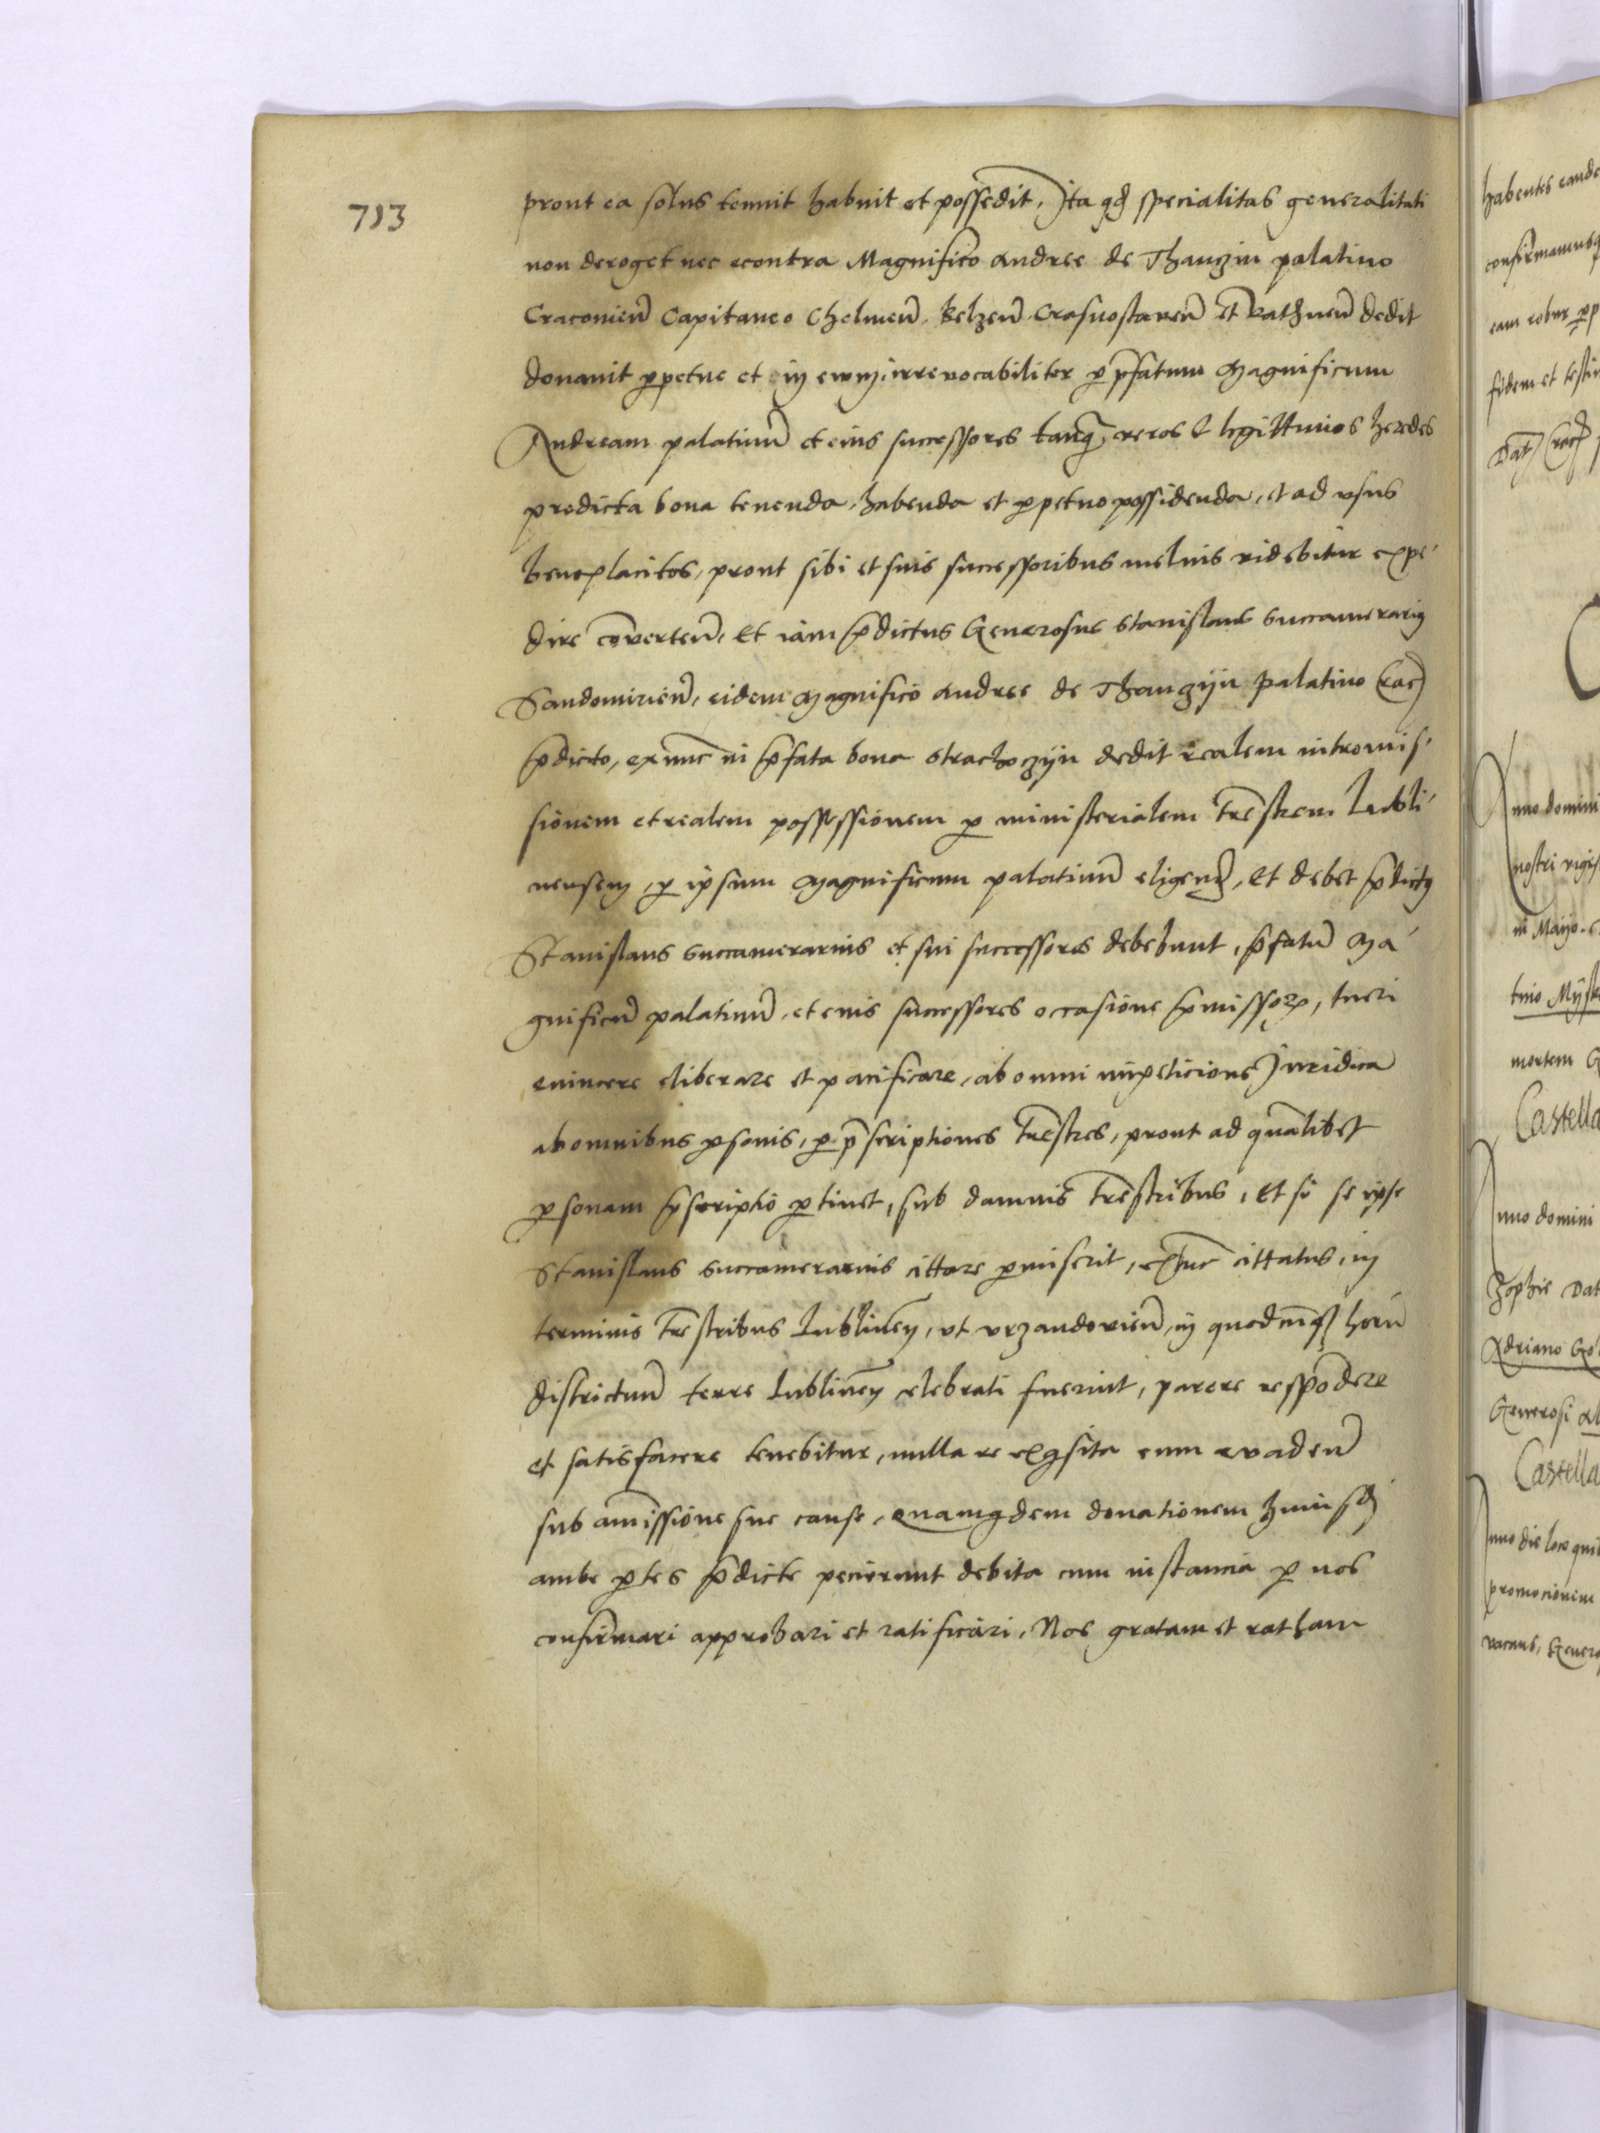 713
prout ea solus tenuit habuit et possedit, Ita qd specialitas generalitati
non deroget nec econtra Magnifico Andree de Thanczin palatino
Cracovien Capitaneo Chelmen. Belzen Crasnostaven et Rathnen dedit
donavit ppetue et in evum irrevocabiliter p pfatum Magnificum
Andream palatinu et eius successores tanq veros & legittimos heredes
predicta bona tenenda, habenda et ppetuo possidenda, et ad usus
beneplacitos, prout sibi et suis successoribus melius videbitur expe
dire converten, Et iam pdictus Generosus Stanislaus Succamerarius
Sandomirien, eidem Magnifico Andree de Thanczijn palatino Crac
pdicto, ex nunc in pfata bona Strachoczijn dedit realem intromis
sionem et realem possessionem p ministerialem trestrem Lubli
nensem, p ipsum Magnificum palatinu eligend, Et debet pdictus
Stanislaus Succamerarius et sui successores debebunt, pfatu Ma
gnificu palatinu, et eius successores occasione pmissorum, tueri
evincere eliberare et pacificare, ab omni impeticione Juridica
ab omnibus psonis, p pscriptiones trestres, prout ad qualibet
psonam pscriptio ptinet, sub damnis trestribus, Et si se ipse
Stanislaus Succamerarius cittare pmiserit, extunc cittatus, in
terminis trestribus Lublinen, ut Urzandovien, in quodcunq horu
districtuu terre Lublinen celebrati fuerint, parere respodere
et satisfacere tenebitur, nulla re exqsita eum evaden
sub amissione sue cause, Quamqdem donationem hmoi
ambe ptes pdicte pecierunt debita cum instancia p nos
confirmari approbari et ratificari, Nos gratam et ratham
habentes eande
confirmamusq
eam robur pp
fidem et testi
Dat Crac
Anno domini
nostri regis
in Maijo
tino Mijsk
mortem G
Castella
Anno domini
Zophie Dat
Adriano Go
Generosi al
Castella
Anno die loco qui
promocionem
vacans, Genero